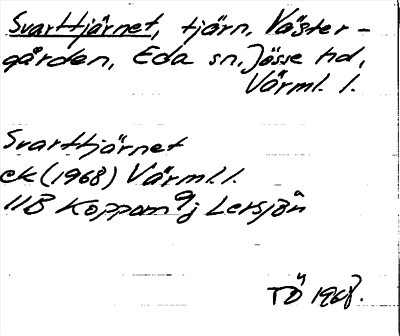 Svarttjärnet, tjärn, Väster-
gården, Eda sn, Jösse hd,
Värml. l.
Svarttjärnet
ek (1968) Värml. l.
11B Koppom 9j Lersjön
TÖ 1968.